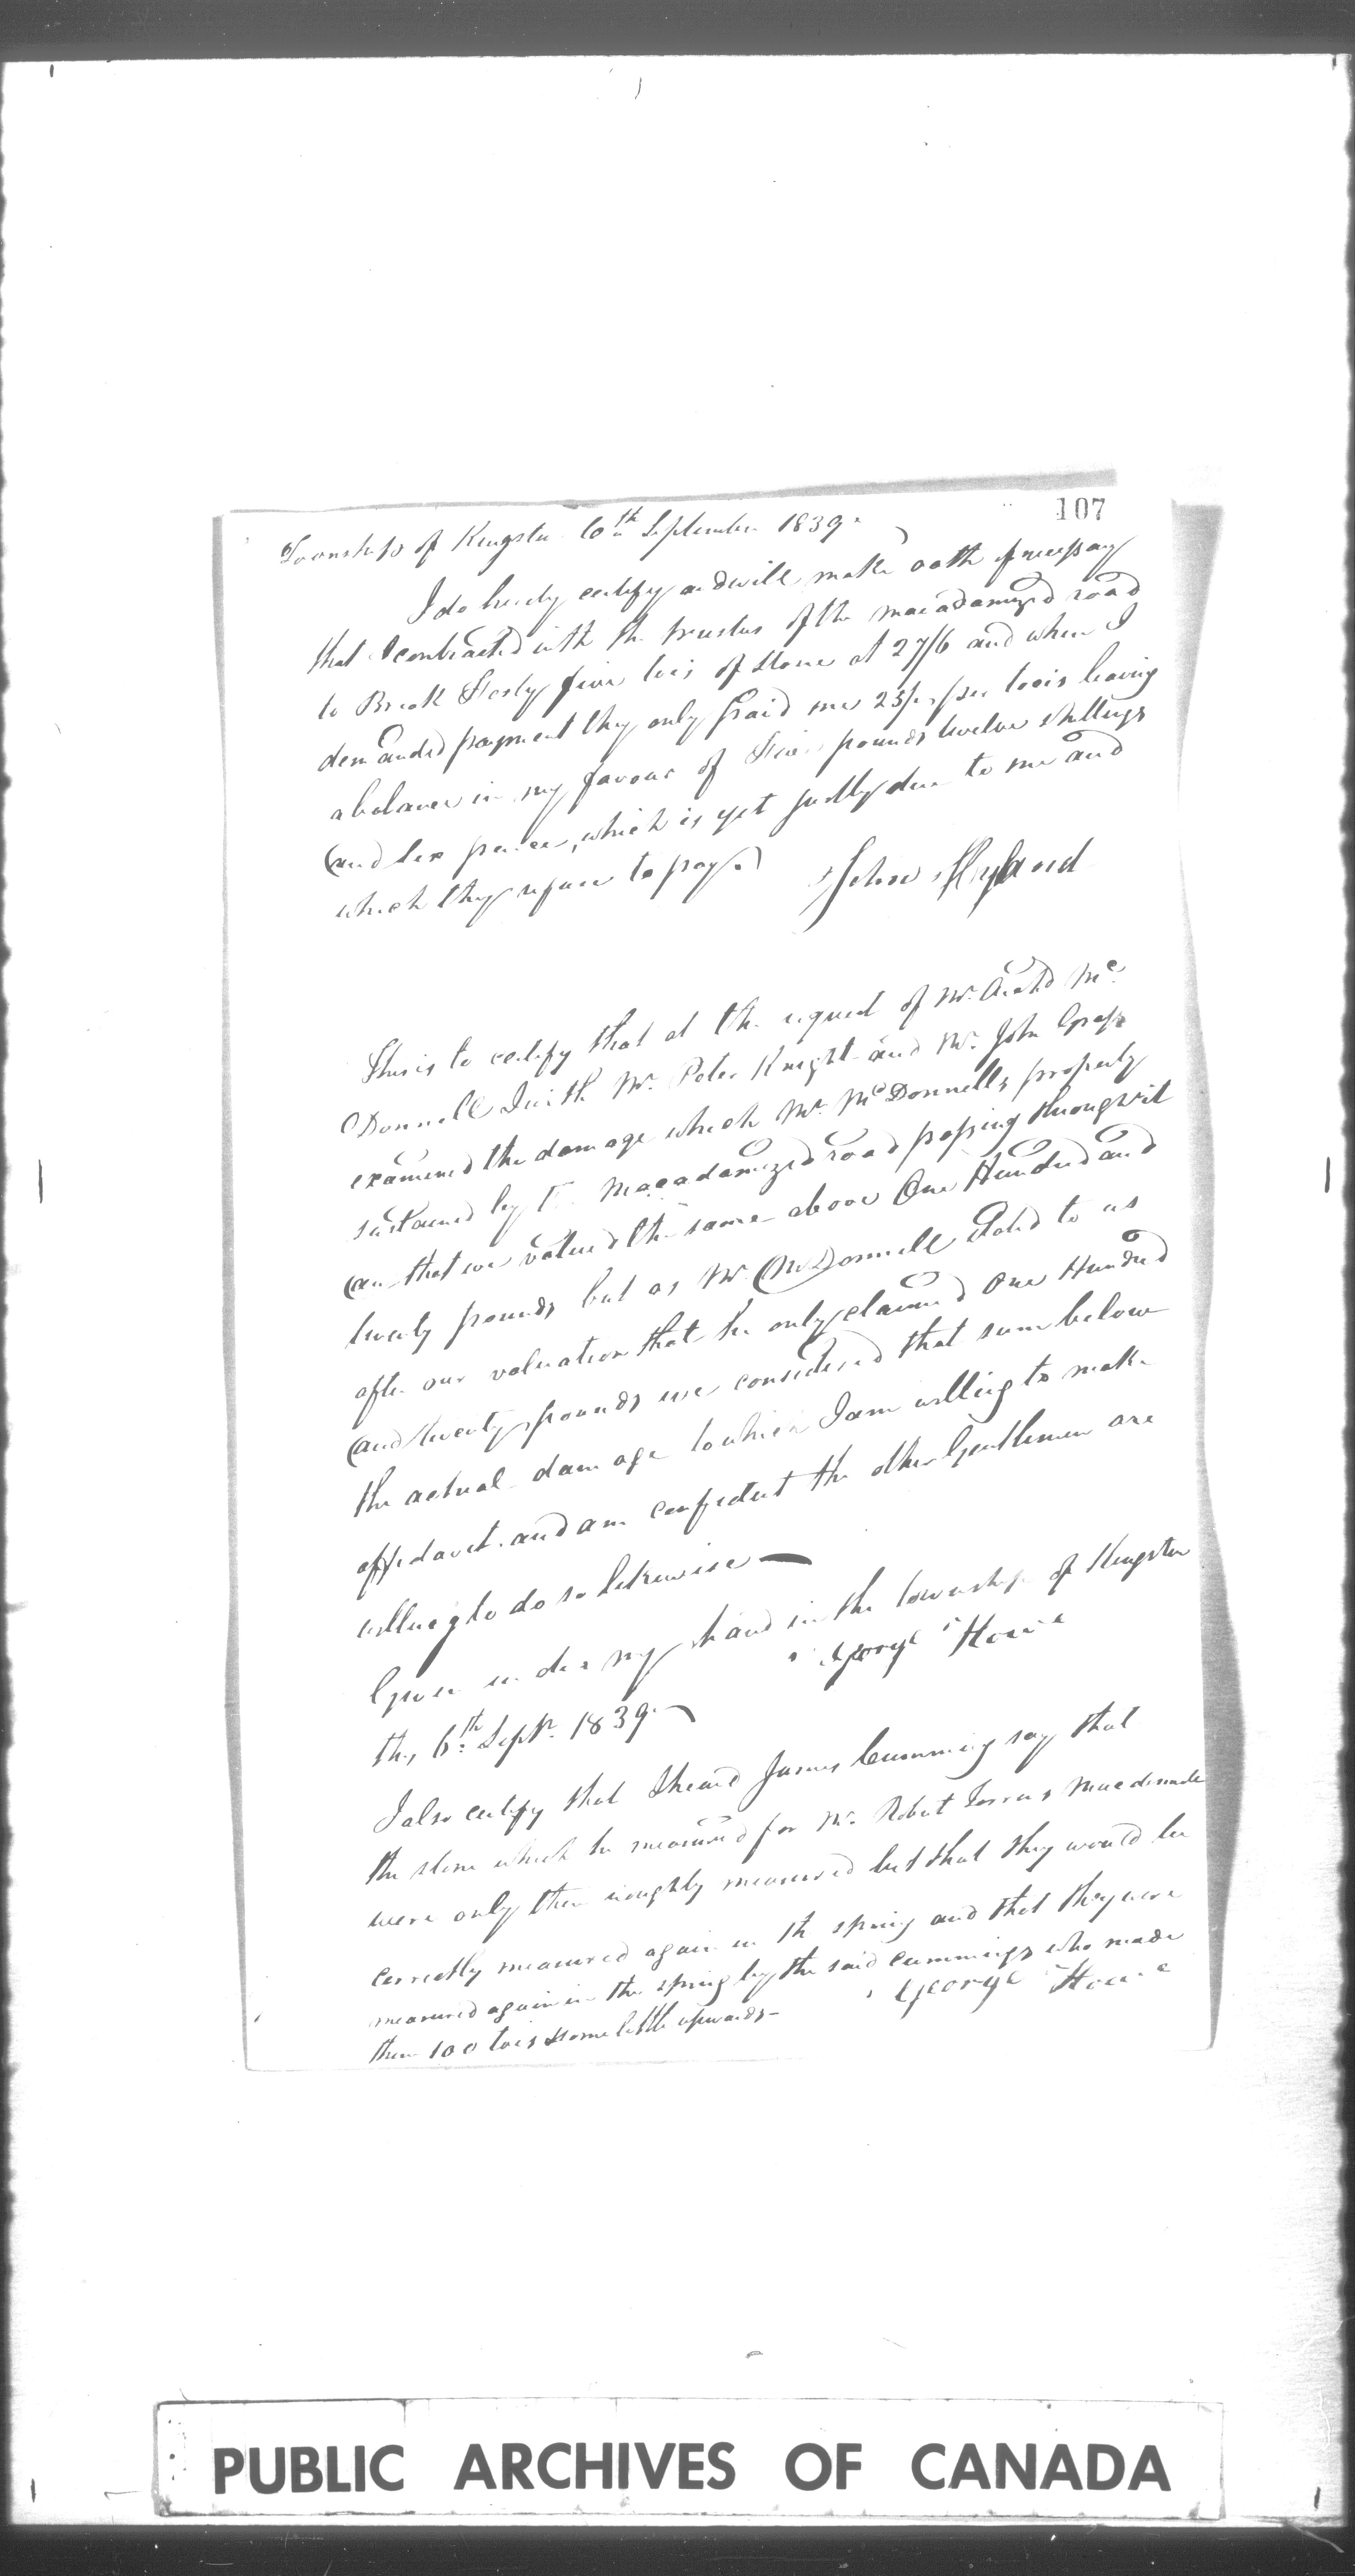 107
Township of Kingston 6th September 1839.
I do hereby certify and will make oath if necessary
that I contracted with the trustees of the macadamized road
to Break Forty five tois of stone at 27/6 and when I
demanded payment they only paid me 25/- per tois leaving
a balance in my favour of Five pounds twelve shillings
and six pence, which is yet justly due to me and
which they refuse to pay.
John Hyland
This is to certify that at the request of Mr. Archd Mc
Donnell I with Mr. Peter Knight and Mr. John Grass
examined the damage which Mr. McDonnells property
sustained by the Macadamized road passing through it
and that we valued the same above One Hundred and
twenty pounds but as Mr. McDonnell stated to us
after our valuation that he only claimed One Hundred
and twenty pounds we considered that sum below
the actual damage to which I am willing to make
affidavit and am confident the other Gentlemen are
willing to do so likewise —
Given under my hand in the township of Kingston
George Howe
the, 6th Sept. 1839.
I also certify that I heard James Cumming say that
the stone which he measured for Mr. Robert
were only then roughly measured but that they would be
correctly measured again in the spring and that they were
measured again in the spring by the said Cummings who made
them 100 tois some little upwards —
George Howe
PUBLIC ARCHIVES OF CANADA